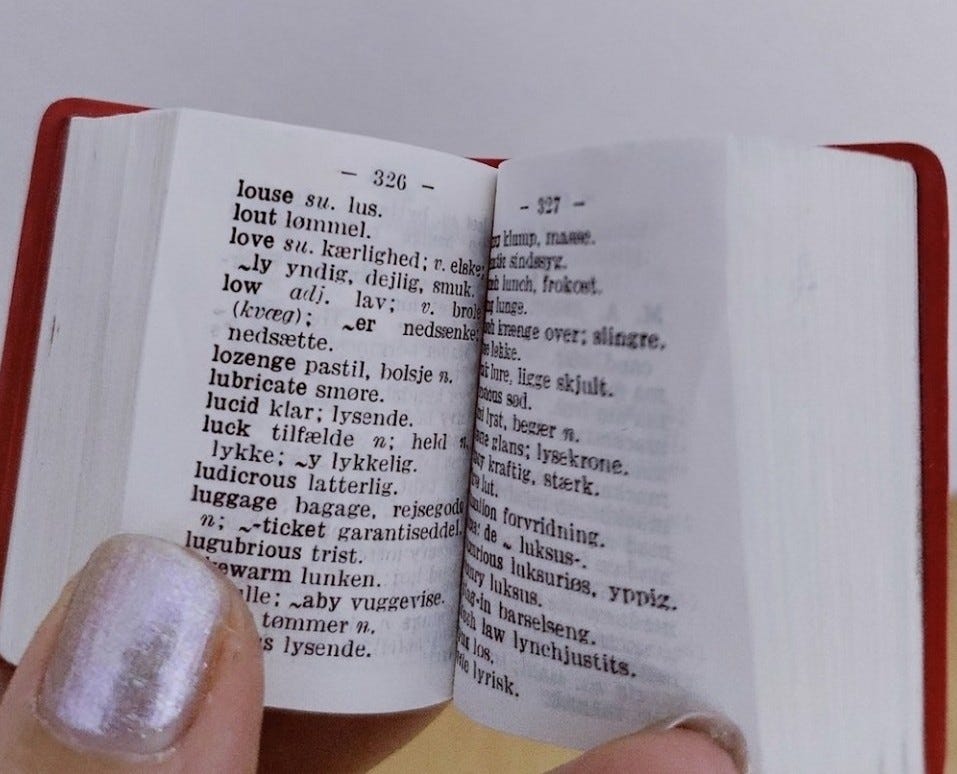 - 326 -
louse su. lus.
lout lømmel.
love su. kærlighed; v. elske;
~ly yndig, dejlig, smuk.
low adj. lav; v. brøle
(kvæg); ~er nedsænke;
nedsætte.
lozenge pastil, bolsje n.
lubricate smøre.
lucid klar; lysende.
luck tilfælde n; held n,
lykke; ~y lykkelig.
ludicrous latterlig.
luggage bagage, rejsegods
n; ~-ticket garantiseddel.
lugubrious trist.
ewarm lunken.
lle; ~aby vuggevise.
tømmer n.
s lysende.
- 327 -
klump, masse.
sindssyg.
lunch, frokost.
lunge.
krænge over; slingre.
lokke.
lure, ligge skjult.
sød.
lyst, begær n.
glans; lysekrone.
kraftig, stærk.
lut.
forvridning.
de ~ luksus-.
luksuriøs, yppig.
luksus.
-in barselseng.
law lynchjustits.
los.
lyrisk.